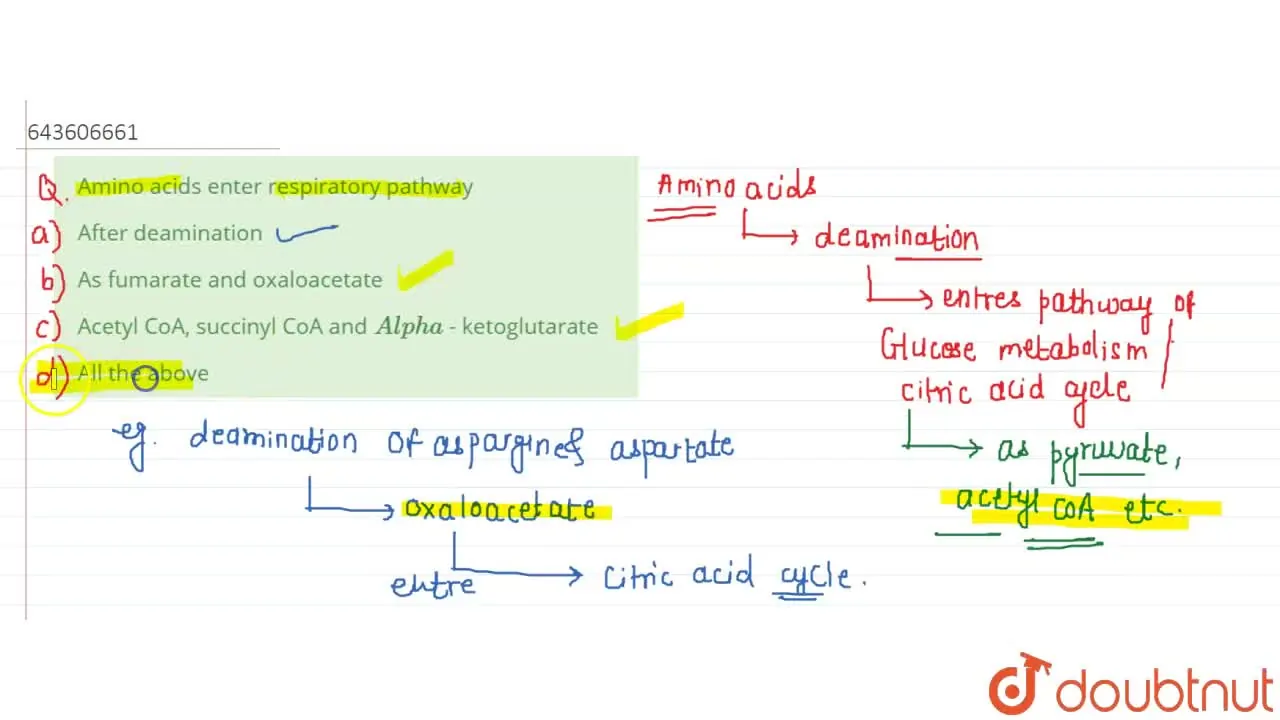 643606661
Q. Amino acids enter respiratory pathway
a) After deamination
b) As fumarate and oxaloacetate
c) Acetyl CoA, succinyl CoA and Alpha - ketoglutarate
d) All the above
Amino acids
deamination
entres pathway of
Glucose metabolism
citric acid cycle
as pyruvate,
acetyl CoA etc.
eg. deamination of aspargine & aspartate
oxaloacetate
entre
citric acid cycle.
doubtnut